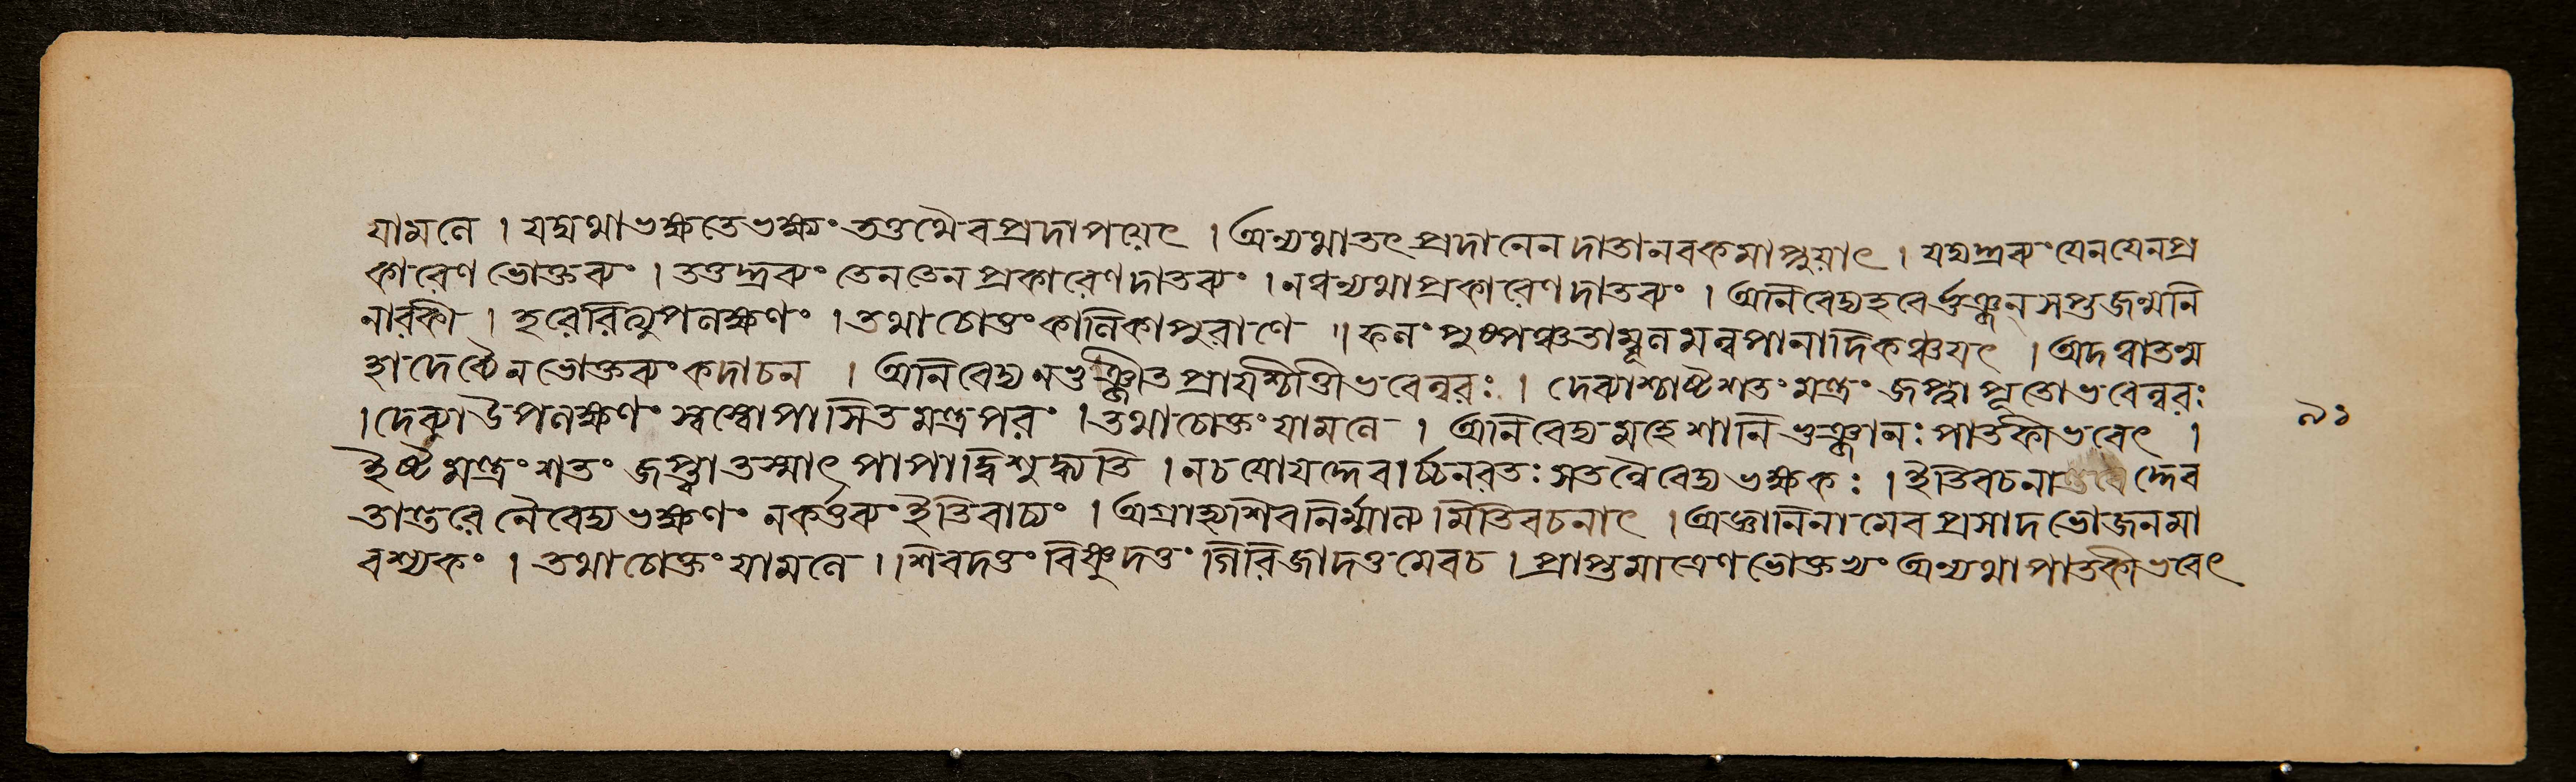 যামলে । যদ্যথাভক্ষতেভক্ষ্যং তত্তথৈবপ্রদাপয়েৎ । অন্যথাতৎপ্রদানেন দাতানরকমাপ্নুয়াৎ । যদ্যদ্দ্রব্যং যেনযেনপ্র
কারেণ ভোক্তব্যং । তত্তদ্দ্রব্যং তেনতেন প্রকারেণদাতব্যং । নত্বন্যথাপ্রকারেণদাতব্যং । অনিবেদ্যহরের্ভুঞ্জন্ সপ্তজন্মনি
নারকী । হরেরিত্যুপলক্ষণং । তথাচোক্তং কালিকাপুরাণে ॥ ফলং পুষ্পঞ্চতাম্বূলমন্নপানাদিকঞ্চযৎ । অদত্বাতন্ম
হাদেব্যৈনভোক্তব্যং কদাচন । অনিবেদ্য নভুঞ্জীত প্রায়শ্চিত্তীভবেন্নরঃ । দেব্যাশ্চাষ্টশতং মন্ত্রং জপ্ত্বাপূতোভবেন্নরঃ
। দেব্যাউপলক্ষণং স্বস্বোপাসিতমন্ত্রপরং । তথাচোক্তং যামলে । অনিবেদ্য মহেশানি ভুঞ্জানঃ পাতকীভবেৎ ।
ইষ্টমন্ত্রং শতং জপ্ত্বাতস্মাৎ পাপাদ্বিশুদ্ধ্যতি । নচ যোযদ্দেবার্চ্চনরতঃ সতন্নৈবেদ্য ভক্ষকঃ । ইতিবচনাত্তবেদ্দেব
তান্তরে নৈবেদ্যভক্ষণং নকর্ত্তব্যং ইতিবাচ্যং । অগ্রাহ্যশিবনির্ম্মাল্যমিতিবচনাৎ । অজ্ঞানিনামেব প্রসাদ ভোজনমা
বশ্যকং । তথাচোক্তং যামলে । । শিবদত্তং বিষ্ণুদত্তং গিরিজাদত্তমেবচ । প্রাপ্তমাত্রেণভোক্তব্যং অন্যথাপাতকীভবেৎ
৯১